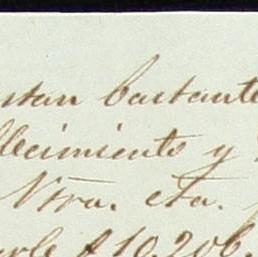 stan bastante
llecimiento y
Ntra. eta.
arle $10.206.